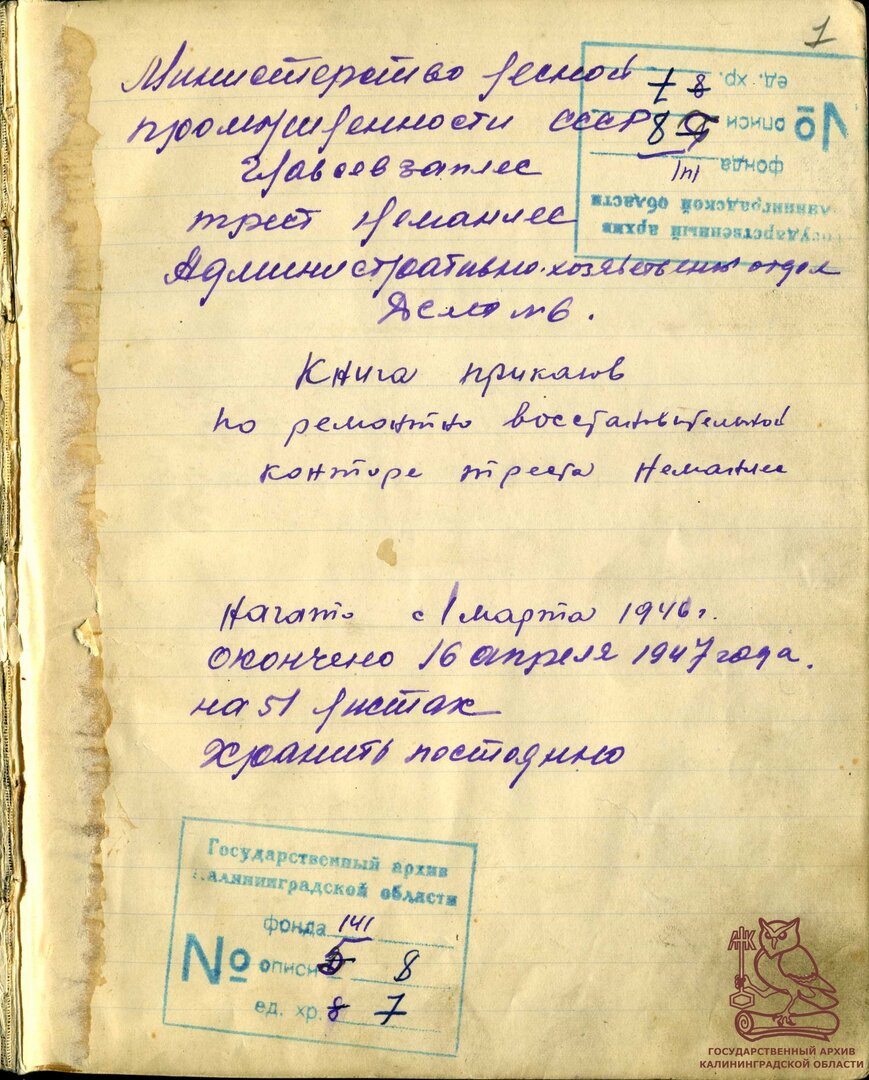 1
Министерство лесной
промышленности СССР
Главсевзаплес
трест Неманлес
Административно-хозяйствены отдел
Дело №6.
Книга приказов
по ремонтно восстановительной
конторе треста Неманлес
Начато с 1 марта 1946 г.
Окончено 16 апреля 1947 года.
на 51 листах
Хранить постоянно
Государственный архив
Калининградской области
фонда 141
№ описи 8
ед. хр. 8 7
Государственный архив
Калининградской области
фонда 141
№ описи 8
ед. хр. 8 7
АЖК
ГОСУДАРСТВЕННЫЙ АРХИВ
КАЛИНИНГРАДСКОЙ ОБЛАСТИ